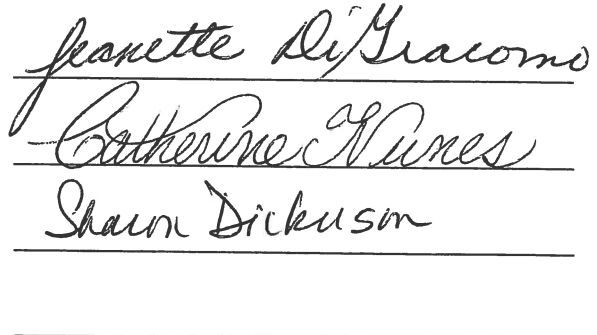 Jeanette DiGiacomo
Catherine Nunes
Sharon Dickinson